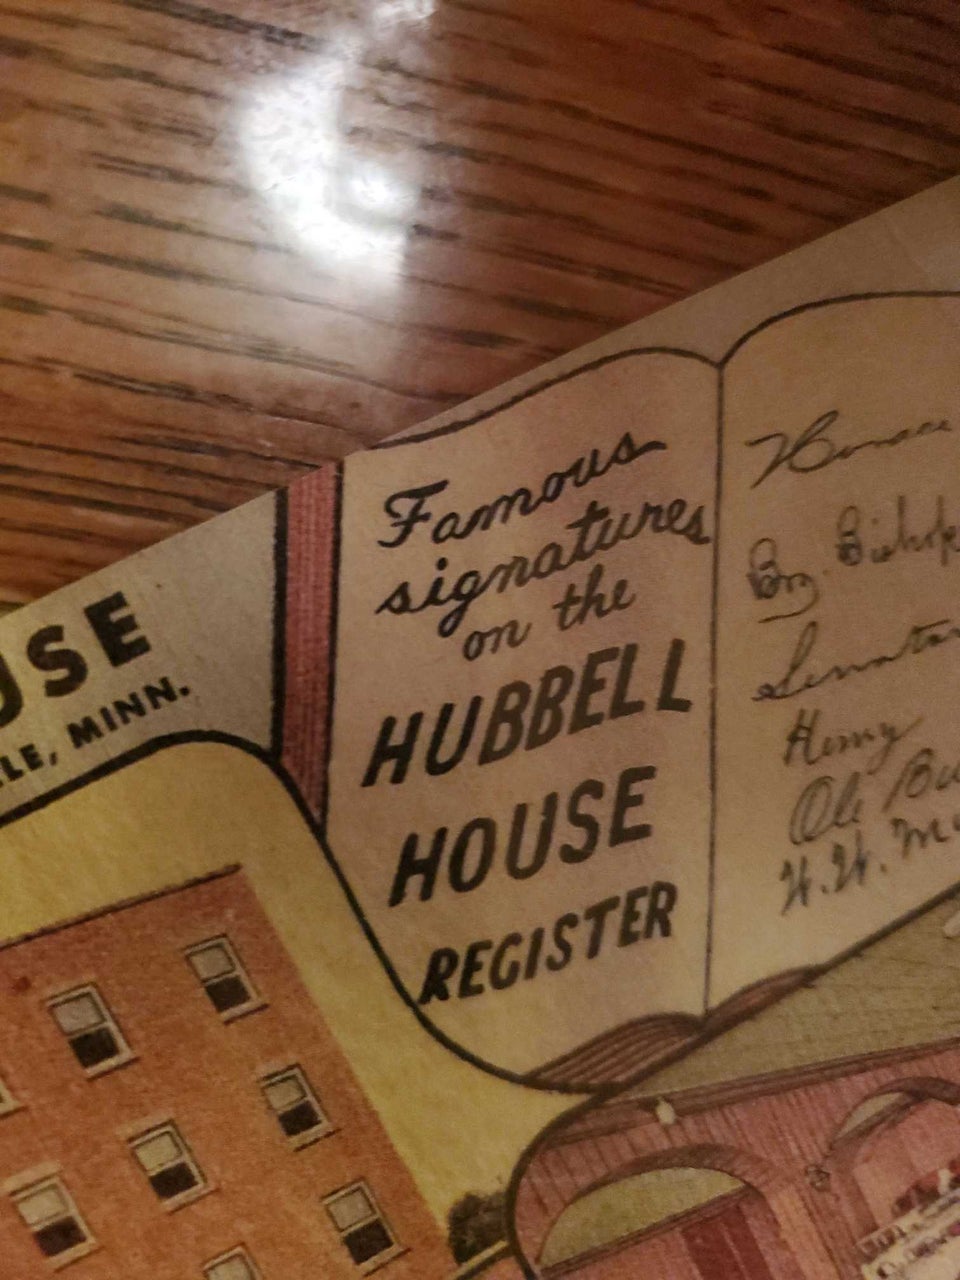 USE
LE, MINN.
Famous
signatures
on the
HUBBELL
HOUSE
REGISTER
Horace
Brg. Bishop
Senator
Henry
Ole Bu
H.H.